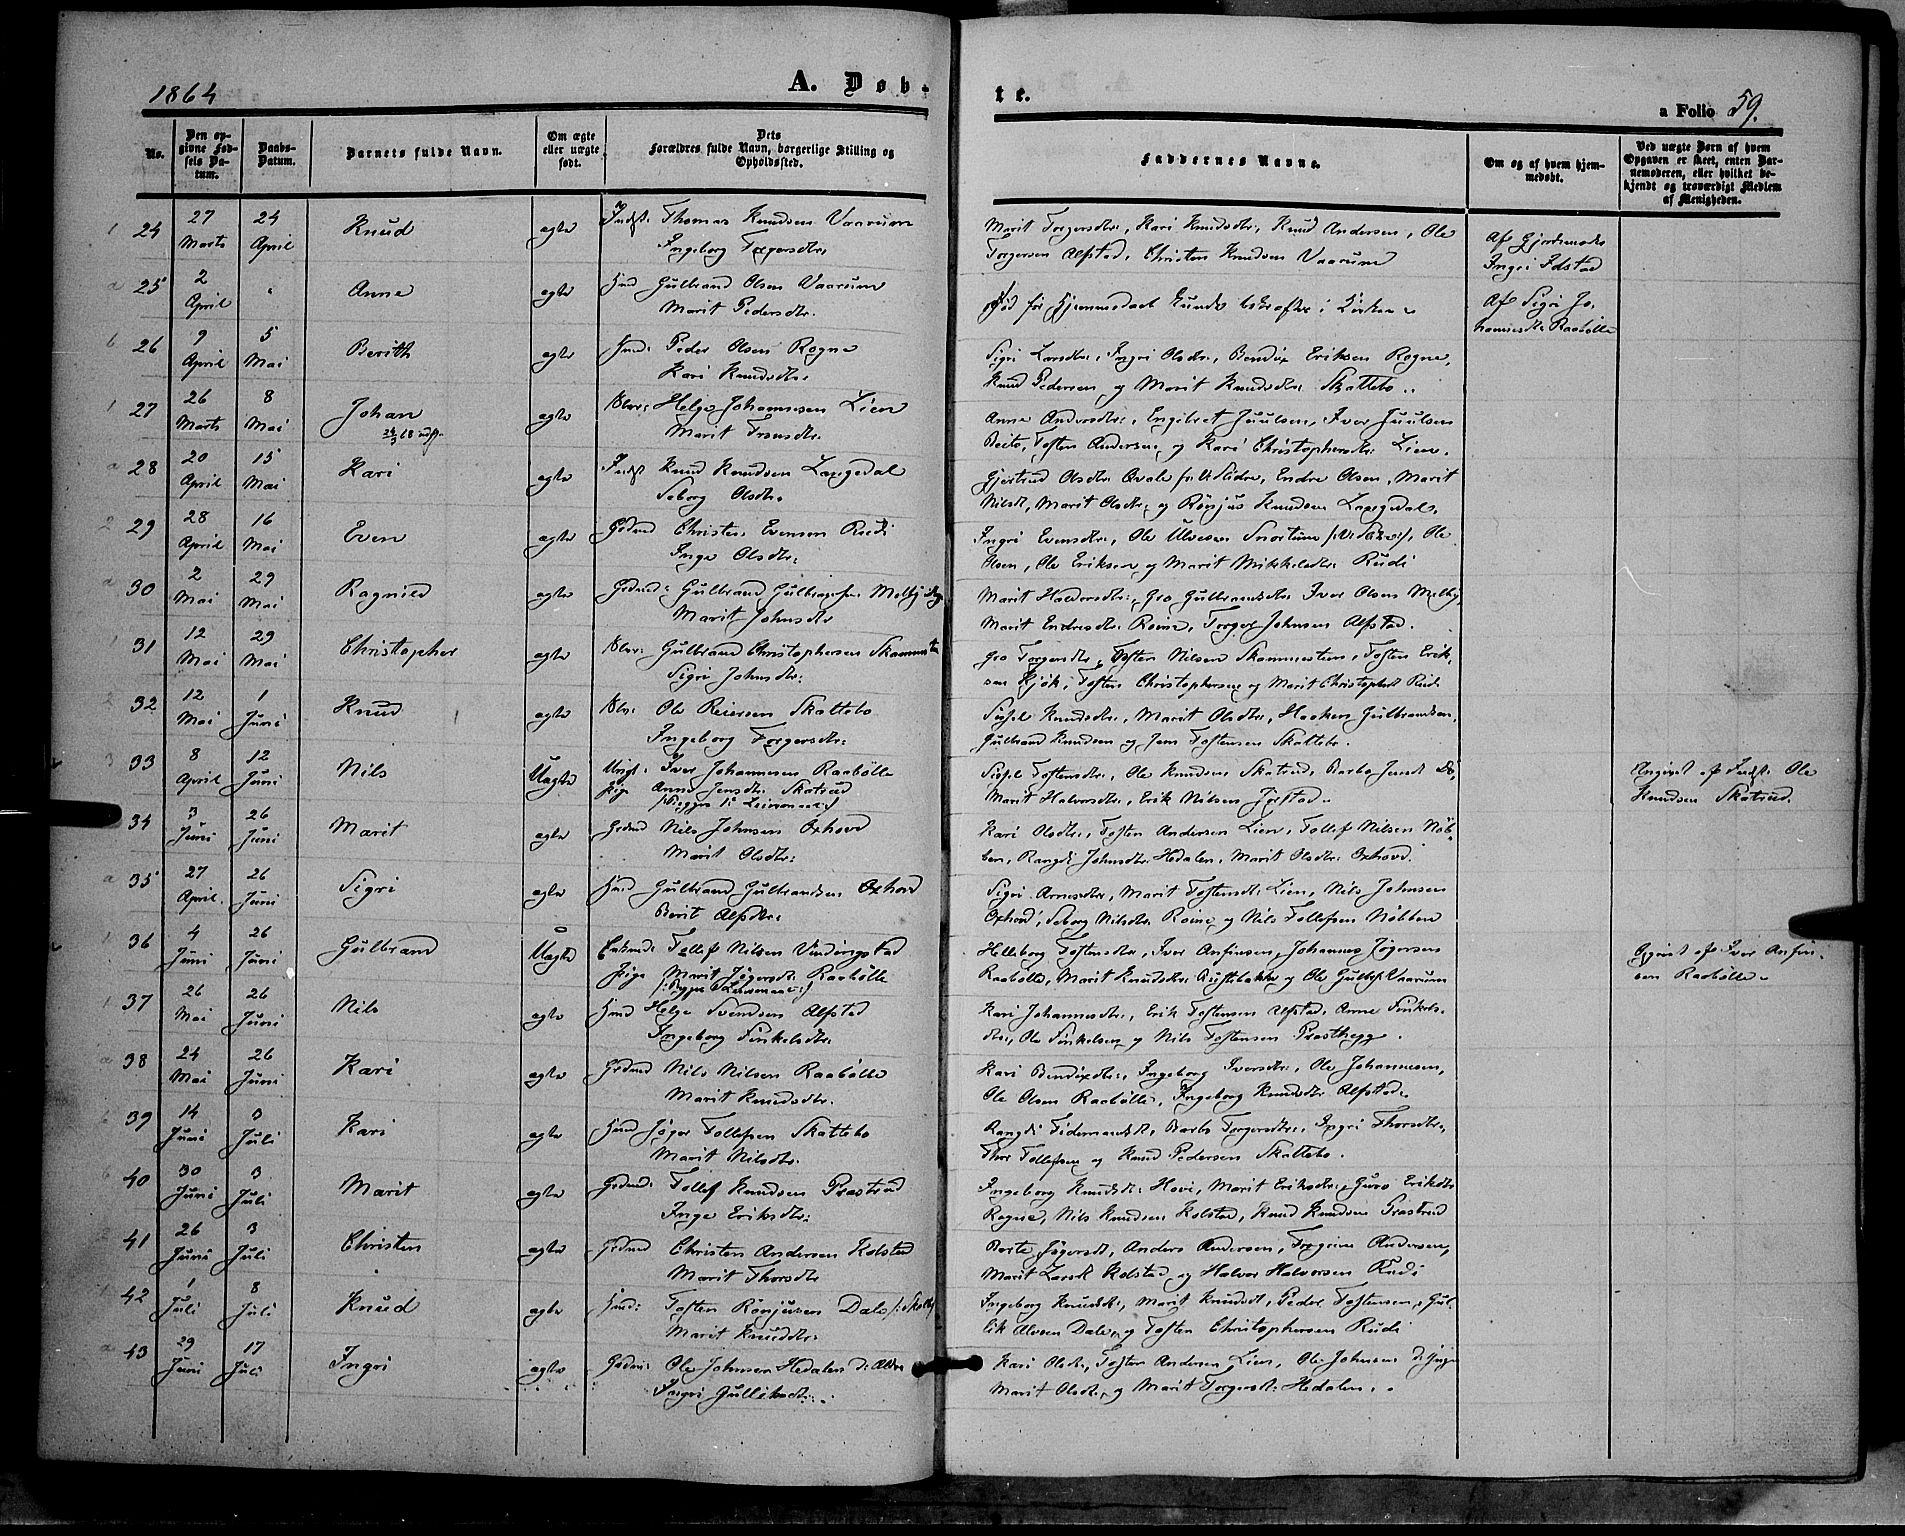 1864
A. Døb-
te.
a Folio 59.
No.
Den op-
givne Fød-
sels Da-
tum.
Daabs-
Datum.
Barnets fulde Navn.
Om ægte
eller uægte
født.
Dets
Forældres fulde Navn, borgerlige Stilling og
Opholdssted.
Faddernes Navne.
Om og af hvem hjem-
medøbt.
Ved uægte Børn af hvem
Opgaven er skeet, enten Bar-
nemoderen, eller hvilket be-
kjendt og troværdigt Medlem
af Menigheden.
24 27 Marts 24 April Knud ægte Indst. Thomas Knudsen Vaarum
Ingeborg Torgersdtr.
Marit Torgersdtr., Kari Knudsdtr., Knud Andersen, Ole
Torgersen Alfstad, Christen Knudsen Vaarum
Af Gjordemoder
Ingri Idstad
25 2 April Anne ægte Hmd Gulbrand Olsen Vaarum
Marit Pedersdtr.
Død før Hjemmedaab kunde bekræftes i Kirken
Af Sigri Jo-
hannesdtr. Raabølle
26 9 April 5 Mai Berith ægte Hmd: Peder Olsen Rogne
Kari Knudsdtr.
Sigri Larsdtr., Ingri Olsdtr., Bendix Eriksen Rogne,
Knud Pedersen og Marit Knudsdtr. Skattebo.
27 26 Marts 8 Mai Johan ægte Helge Johannesen Lien
Marit Iversdtr.
Anne Andersdtr., Engebret Juulsen, Iver Juulsen
Beito, Tosten Andersen og Kari Christophersdtr. Lien.
28 20 April 15 Mai Kari ægte Indst Knud Knudsen Laxgedal
Seborg Olsdtr.
Gjertrud Olsdtr. Qvale V Slidre, Endre Olsen, Marit
Nilsdt, Marit Olsdtr. og Rønjus Knudsen Laxgedal.
29 28 April 16 Mai Even ægte Grdmd Christen Evensen Rudi
Inge Olsdtr:
Ingri Evensdtr., Ole Ulvesen Snortum, Ole
Olsen, Ole Eriksen og Marit Mikkelsdtr Rudi
30 2 Mai 29 Mai Ragnild ægte Grdmd: Gulbrand Gulbrandsen Melby
Marit Johnsdtr
Marit Haldorsdtr., Gro Gulbrandsdtr Iver Olsen Melby,
Marit Endresdtr. Roine, Torger Johnsen Alfstad.
31 12 Mai 29 Mai Christopher ægte Gulbrand Christophersen Skammestein
Sigri Johnsdtr:
Gro Torgersdtr., Tosten Nilsen Skammestein, Tosten Erik-
sen Kjøk, Tosten Christophersen og Marit Christophdt Rudi
32 12 Mai 1 Juni Knud ægte Ole Reiersen Skattebo
Ingeborg Torgersdtr:
Sissel Knudsdtr., Marit Olsdtr., Haaken Gulbrandsen,
Gulbrand Knudsen og Jens Tostensen Skattebo.
33 8 April 12 Juni Nils Uægte Ungk: Iver Johannesen Raabølle
Pige Anne Jensdtr. Skatrud
/:Begges 1ste Leiermaal:/
Sissel Tostensdtr., Ole Knudsen Skatrud, Barbo Jensdt Do,
Marit Halvorsdtr., Erik Nilsen Jørstad.
Angivet af Indst: Ole
Knudsen Skatrud.
34 3 Juni 26 Juni Marit ægte Grdmd Nils Johnsen Oxhovd
Marit Olsdtr:
Kari Olsdtr., Tosten Andersen Lien, Tollef Nilsen Nøb-
ben, Rangdi Johnsdtr. Hedalen, Marit Olsdtr. Oxhovd.
35 27 April. 26 Juni Sigri ægte Hmd Gulbrand Gulbrandsen Oxhovd
Berit Alfsdtr.
Sigri Arnesdtr., Marit Tostensdtr. Lien, Nils Johnsen
Oxhovd, Seborg Nilsdtr. Roine og Nils Tollefsen Nøbben
36 4 Juni 26 Juni Gulbrand Uægte Enkemd: Tollef Nilsen Vinderingstad
Pige Marit Jøgersdt Raabølle
Helleborg Tostensdtr., Iver Anfinsen, Johannes Jøgersen
Raabølle, Marit Knudsdtr. og Ole Gulbrs. Vaarum
Opgivet af Iver Anfin-
sen Raabølle.
37 26 Mai 26 Juni Nils ægte Hmd Helge Svendsen Alfstad
Ingeborg Finkelsdtr.
Kari Johannesdtr., Erik Tostensen Alfstad. Anne Finkels-
dtr., Ole Finkelsen og Nils Tostensen Præsthegg.
38 24 Mai 26 Juni Kari ægte Grdmd Nils Nilsen Raabølle
Marit Knudsdtr.
Kari Bendixdtr., Ingeborg Iversdtr., Ole Johannesen,
Ole Olsen Raabølle, Ingeborg Knudsdtr Alfstad.
39 14 Juni 3 Juli Kari ægte Hmd Jøger Tollefsen Skattebo
Marit Nilsdtr.
Rangdi Fidemandsdt, Barbo Torgersdtr., Ingri Thorsdtr.,
Thor Tollefsen og Knud Pedersen Skattebo.
40 30 Juni 3 Juli Marit ægte Grdmd: Tollef Knudsen Præstrud
Inge Eriksdtr:
Ingeborg Knudsdt. Hovi, Marit Eriksdtr., Guro Eriksdtr
Rogne, Nils Knudsen Kolstad, Knud Knudsen Præstrud
41 26 Juni 3 Juli Christen ægte Grdmd Christen Andersen Kolstad
Marit Thorsdtr
Berte Jøgersdt, Anders Andersen, Andersen,
Marit Larsdt Kolstad, og Halvor Halvorsen Rudi
42 1 Juli 8 Juli Knud ægte Hmd: Tosten Rønjusen Dale
Marit Knudsdtr:
Ingeborg Knudsdtr., Marit Knudsdt, Peder Tostensen, Gul-
lik Alvsen Dale, og Tosten Christophersen Rudi
43 29 Juni 17 Juli Ingri ægte Grdmd: Ole Johnsen Hedalen d: Ældre
Ingri Gulliksdtr.
Kari Olsdt., Tosten Andersen Lien, Ole Johnsen d: Yngre
Marit Olsdt. og Marit Torgersdt. Hedalen.